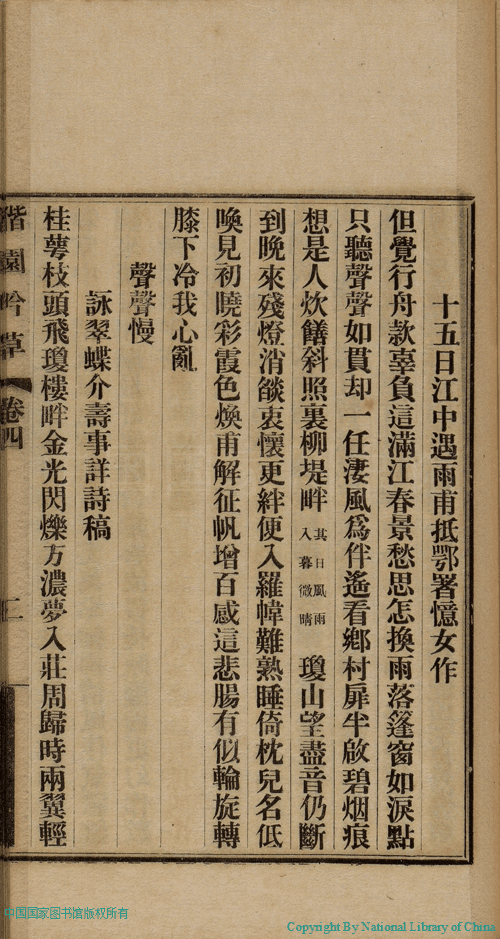 十五日江中遇雨甫抵鄂署憶女作
但覺行舟款辜負這滿江春景愁思怎換雨落篷窗如淚點
只聽聲聲如貫却一任淒風爲伴遙看鄉村扉半啟碧烟痕
想是人炊饍斜照裏柳堤畔其日風雨入暮微晴瓊山望盡音仍斷
到晚來殘燈消燄衷懷更絆便入羅幃難熟睡倚枕兒名低
喚見初曉彩霞色煥甫解征帆增百感這悲腸有似輪旋轉
膝下冷我心亂
聲聲慢
詠翠蝶介壽事詳詩稿
桂萼枝頭飛瓊樓畔金光閃爍方濃夢入莊周歸時兩翼輕
潛園吟草 卷四 二
中国国家图书馆版权所有
Copyright By National Library of China